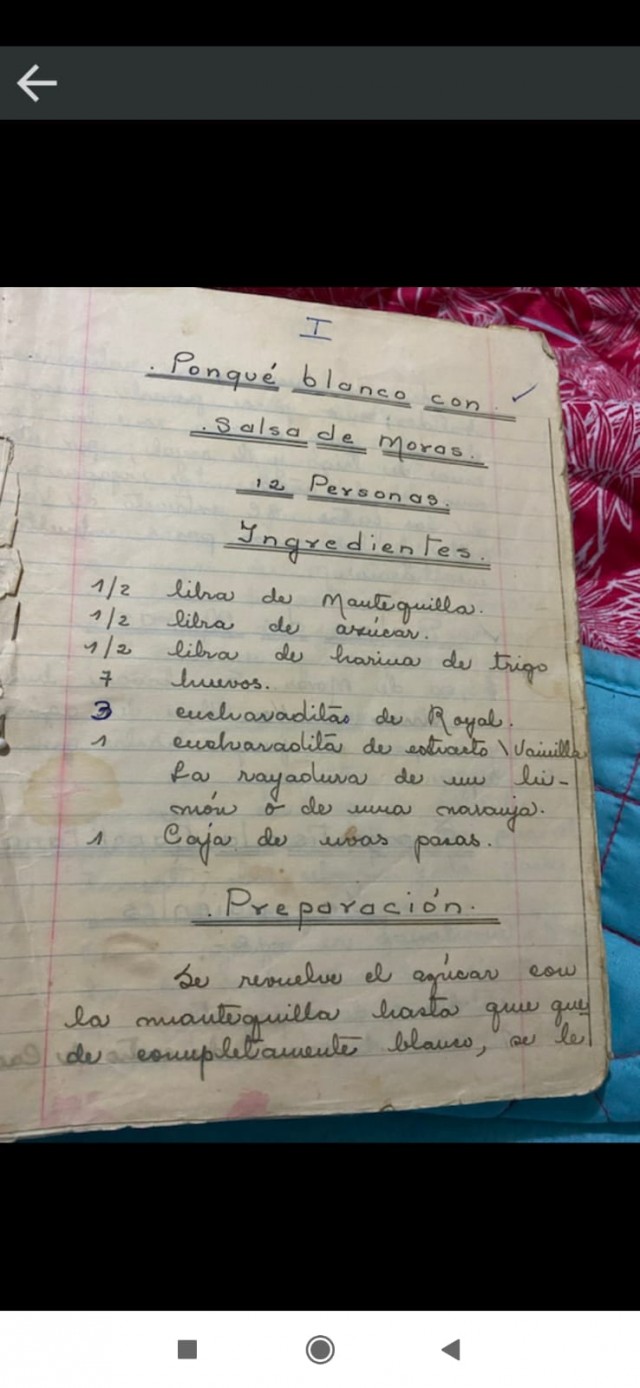 I
. Ponqué blanco con.
. Salsa de Moras.
12 Personas.
Ingredientes.
1/2 libra de Mantequilla.
1/2 libra de azúcar.
1/2 libra de harina de trigo
7 huevos.
3 cucharaditas de Royal.
1 cucharadita de extracto \ Vainilla
La rayadura de un li-
món o de una naranja.
1 Caja de uvas pasas.
. Preparación.
Se revuelve el azúcar con
la mantequilla hasta que que
de completamente blanco, se le